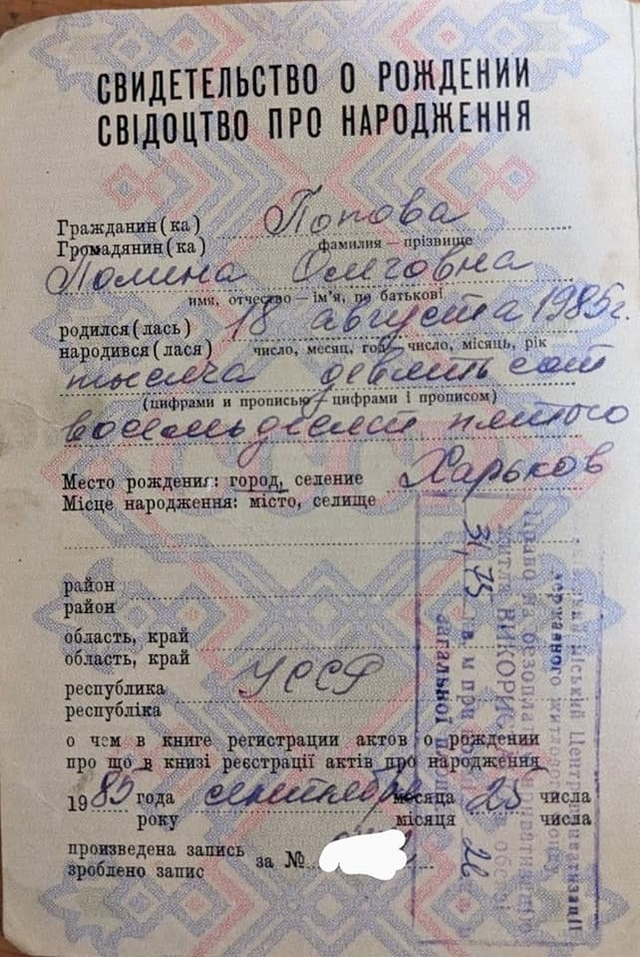 СВИДЕТЕЛЬСТВО О РОЖДЕНИИ
СВІДОЦТВО ПРО НАРОДЖЕННЯ
Гражданин(ка) Попова
Громадянин(ка) фамилия — прізвище
Полина Олеговна
имя, отчество — ім'я, по батькові
родился(лась) 18 августа 1985г.
народився(лася) число, месяц, год число, місяць, рік
тысяча девятьсот
(цифрами и прописью цифрами і прописом)
восемьдесят пятого
Место рождения: город, селение Харьков
Місце народження: місто, селище
район
район
область, край
область, край
республика УССР
республіка
о чем в книге регистрации актов о рождении
про що в книзі реєстрації актів про народження
1985 года сентября месяца 25 числа
року місяця числа
произведена запись за №
зроблено запис
міський Центр приватизації
державного житлового фонду
Право на безоплатну приватизацію
житла ВИКОРИС
31,75 кв. м при
загальної площі